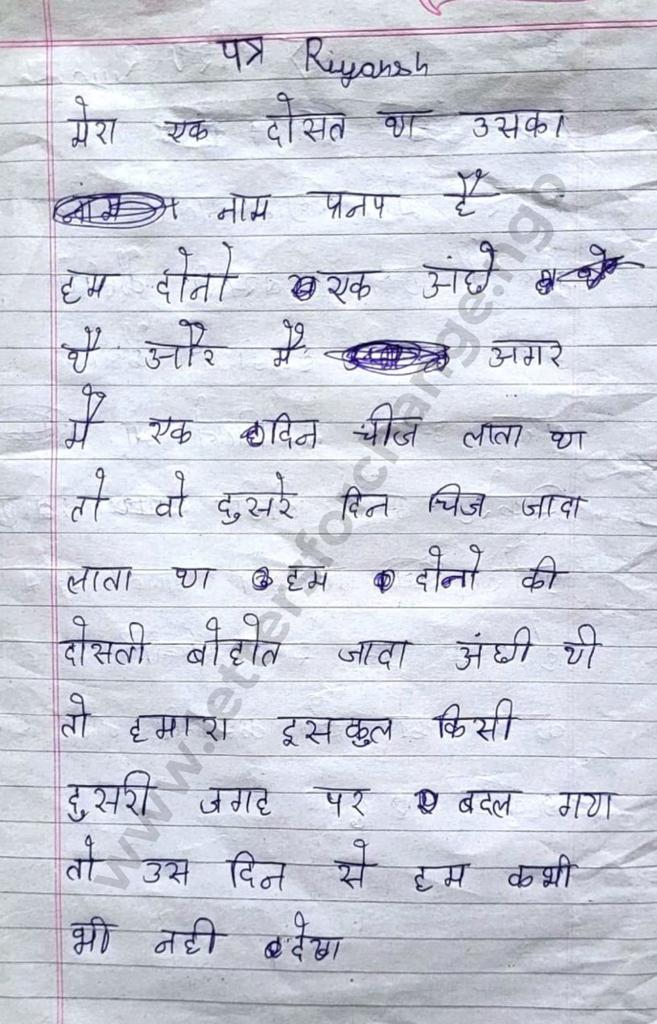 पत्र Riyansh
मेरा एक दोसत था उसका
नाम प्रनप है
हम दोनो एक अंछे
थै और मै अगर
मै एक दिन चीज लाता था
तो वो दुसरे दिन चिज जादा
लाता था हम दोनो की
दोसती बोहोत जादा अंछी थी
तो हमारा इसकुल किसी
दुसरी जगह पर बदल गया
तो उस दिन से हम कभी
भी नही देखा
www.lettersforchange.ngo